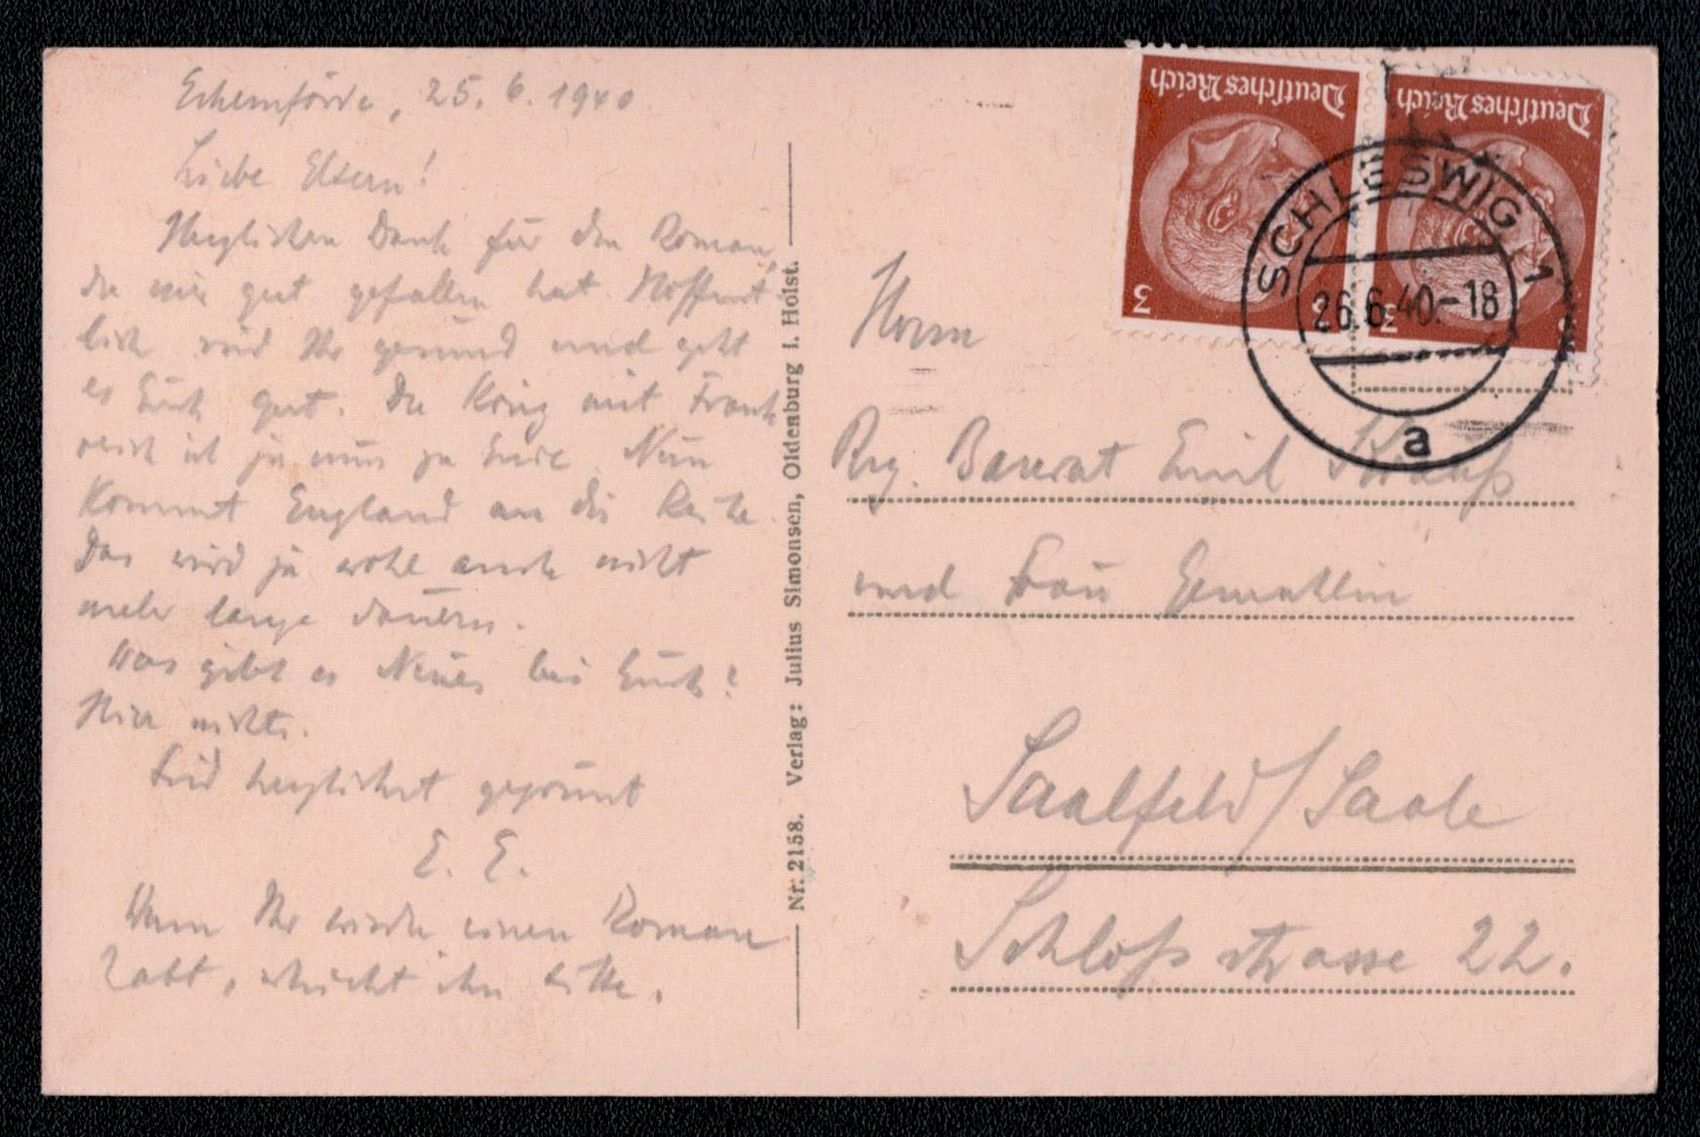 Eckernförde, 25. 6. 1940
Liebe Eltern!
Herzlichen Dank für den Roman,
der mir gut gefallen hat. Hoffent
lich seid Ihr gesund und geht
es Euch gut. Der Krieg mit Frank
reich ist ja nun zu Ende. Nun
kommt England an die Reihe.
Das wird ja wohl auch nicht
mehr lange dauern.
Was gibt es Neues bei Euch?
Hier nichts.
Seid herzlichst gegrüsst
E. E.
Wenn Ihr wieder einen Roman
habt, schickt ihn bitte.
Nr. 2158. Verlag: Julius Simonsen, Oldenburg i. Holst.
Deutsches Reich
3
Deutsches Reich
3
3
SCHLESWIG 1
26.6.40.-18
a
Herrn
Reg. Baurat Emil
und Frau Gemahlin
Saalfeld/Saale
Schloßstrasse 22.